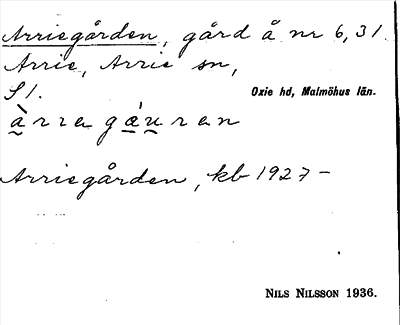 Arriegården, gård å nr 6, 31
Arrie, Arrie sn,
S1.
Oxie hd, Malmöhus län.
àrrəgáu̯rən
Arriegården, kb 1927 –
NILS NILSSON 1936.